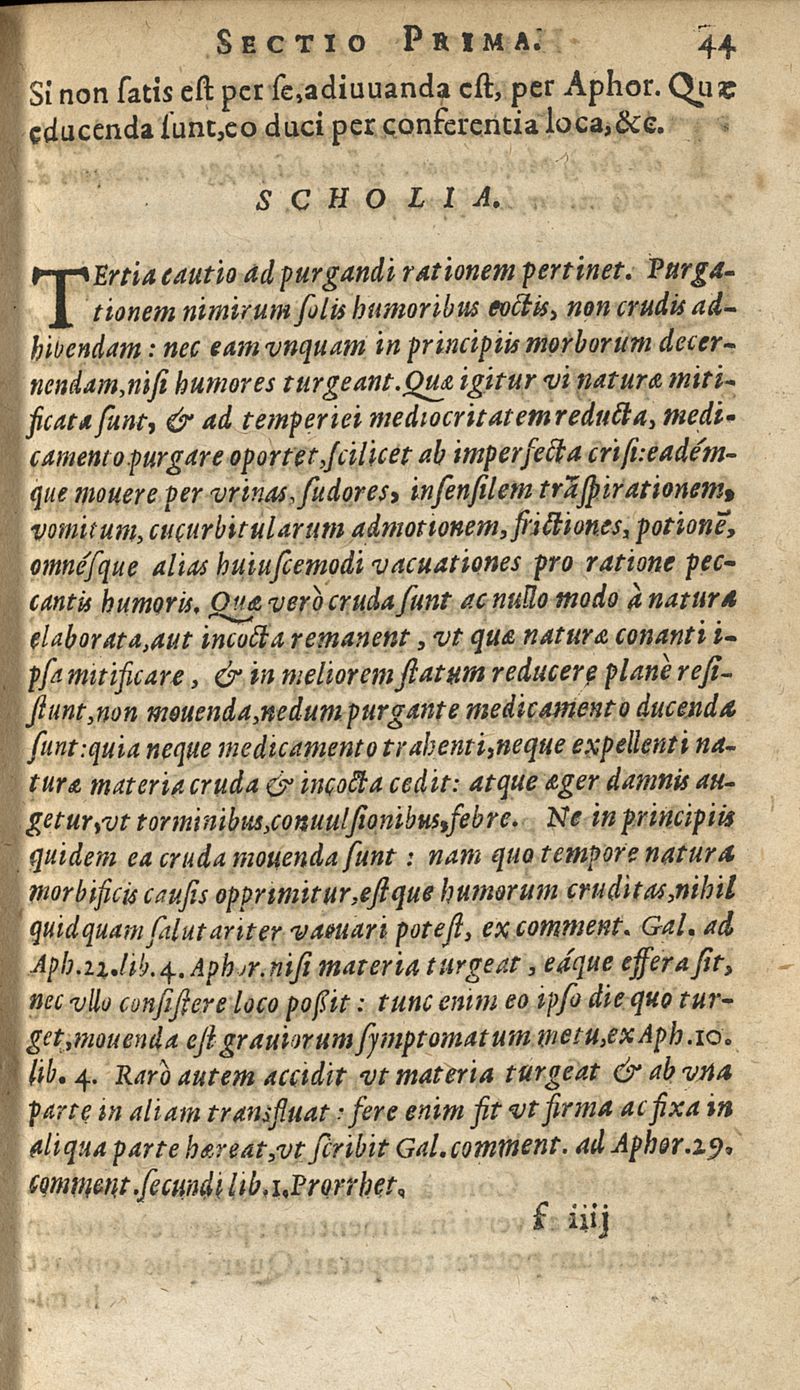 SECTIO PRIMA. 44
Si non ſatis eſt per ſe,adiuuanda eſt, per Aphor. Quæ
educenda ſunt,eo duci per conferentia loca,&c.
SCHOLIA.
TErtia cautio ad purgandi rationem pertinet. Purga-
tionem nimirum ſolis humoribus coctis, non crudis ad-
hibendam : nec eam vnquam in principiis morborum decer-
nendam,niſi humores turgeant. Quæ igitur vi naturæ miti-
ficata ſunt, & ad temperiei mediocritatem reducta, medi-
camento purgare oportet,ſcilicet ab imperfecta criſi:eadém-
que mouere per vrinas, ſudores, inſenſilem trãſpirationem,
vomitum, cucurbitularum admotionem, frictiones, potionẽ,
omnéſque alias huiuſcemodi vacuationes pro ratione pec-
cantis humoris. Quæ verò cruda ſunt ac nullo modo à natura
elaborata,aut incocta remanent , vt quæ naturæ conanti i-
pſa mitificare , & in meliorem ſtatum reducere planè reſi-
ſtunt,non mouenda,nedum purgante medicamento ducenda
ſunt:quia neque medicamento trahenti,neque expellenti na-
turæ materia cruda & incocta cedit: atque æger damnis au-
getur,vt torminibus,conuulſionibus,febre. Ne in principiis
quidem ea cruda mouenda ſunt : nam quo tempore natura
morbificis cauſis opprimitur,eſtque humorum cruditas,nihil
quidquam ſalutariter vacuari poteſt, ex comment. Gal. ad
Aph.22.lib.4. Aphor. niſi materia turgeat , eáque effera ſit,
nec vllo conſiſtere loco poßit : tunc enim eo ipſo die quo tur-
get,mouenda eſt grauiorum ſymptomatum metu,ex Aph.10.
lib. 4. Rarò autem accidit vt materia turgeat & ab vna
parte in aliam transfluat : fere enim fit vt firma ac fixa in
aliqua parte hæreat,vt ſcribit Gal.comment. ad Aphor.29.
comment.ſecundi lib.1.Prorrhet.
f iiij